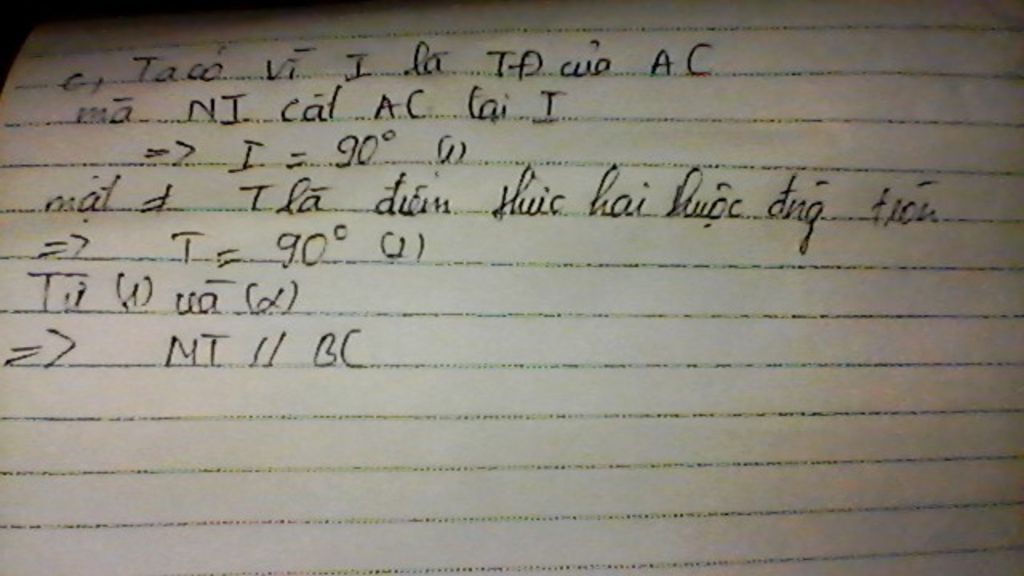 c, Ta có vì I là TĐ của AC
mà NI cắt AC tại I
=> I = 90° (1)
mặt ≠ T là điểm thức hai thuộc đng tròn
=> T = 90° (2)
Từ (1) và (2)
=> NT // BC